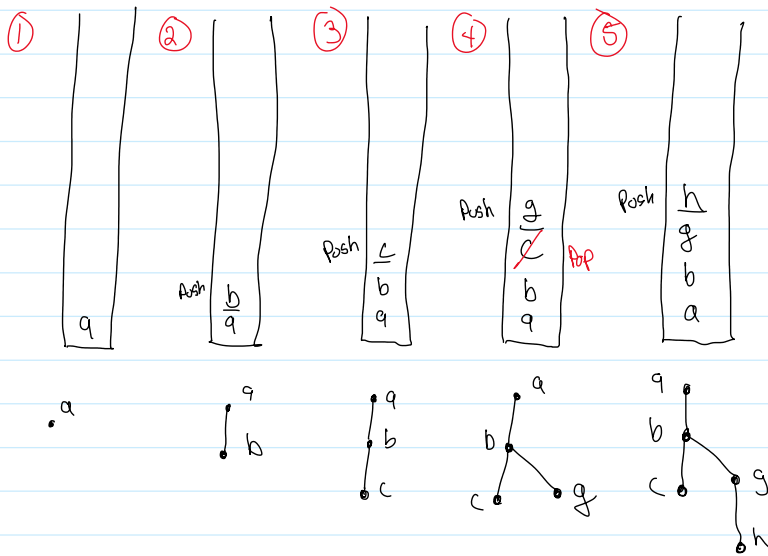 ① ② ③ ④ ⑤
a
Push b
a
Push c
b
a
Push g
c Pop
b
a
Push h
g
b
a
a
a
b
a
b
c
a
b
c g
a
b
c g
h